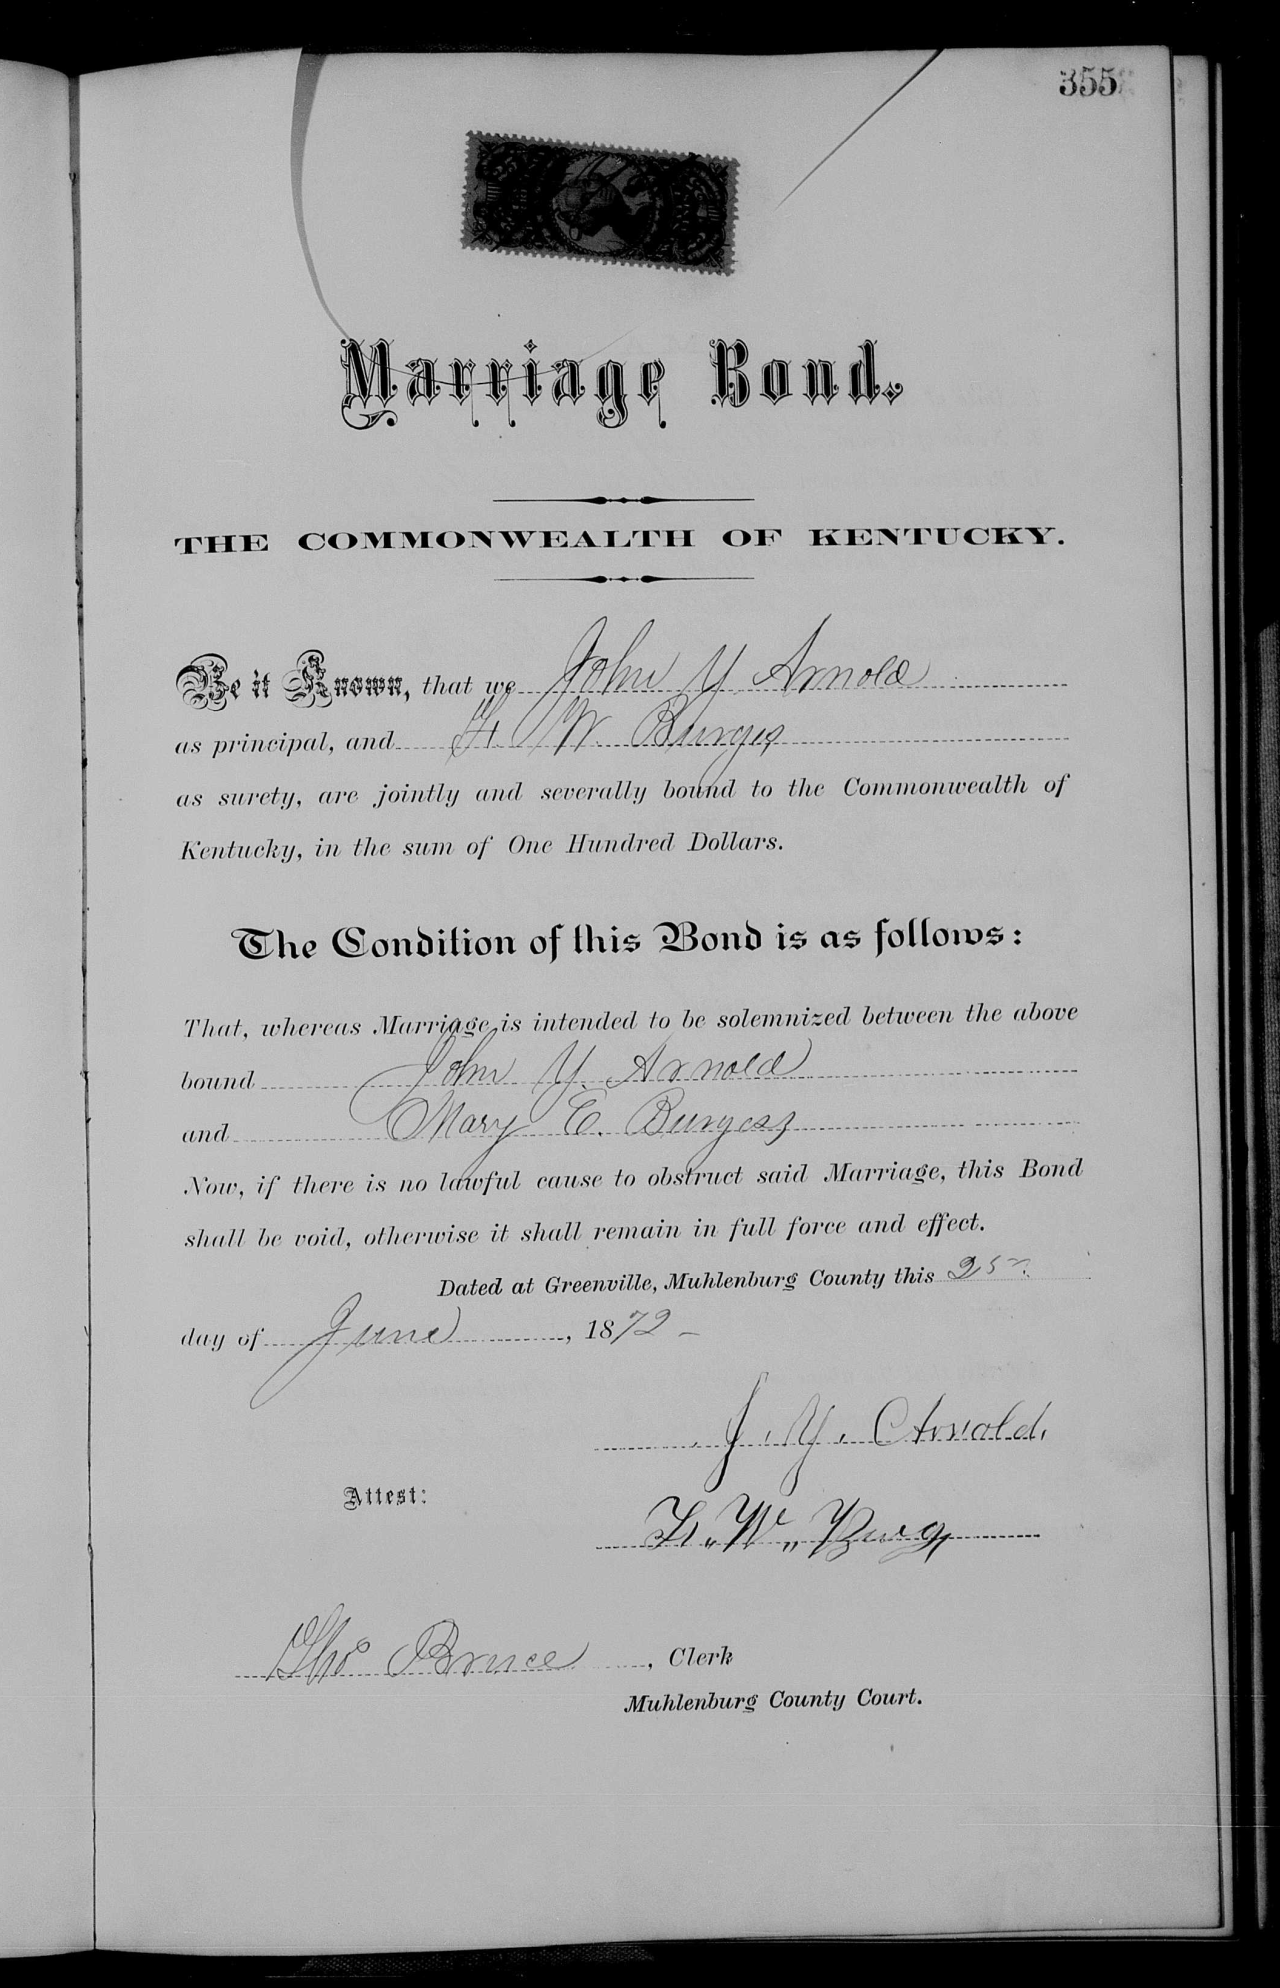 355
Marriage Bond.
THE COMMONWEALTH OF KENTUCKY.
Be it Known, that we John Y. Arnold
as principal, and W. Burges
as surety, are jointly and severally bound to the Commonwealth of
Kentucky, in the sum of One Hundred Dollars.
The Condition of this Bond is as follows:
That, whereas Marriage is intended to be solemnized between the above
bound John Y. Arnold
and Mary E. Burgess
Now, if there is no lawful cause to obstruct said Marriage, this Bond
shall be void, otherwise it shall remain in full force and effect.
Dated at Greenville, Muhlenburg County this 25
day of June, 1872
J. Y. Arnold.
Attest:
W.
Tho^s Bruce, Clerk
Muhlenburg County Court.